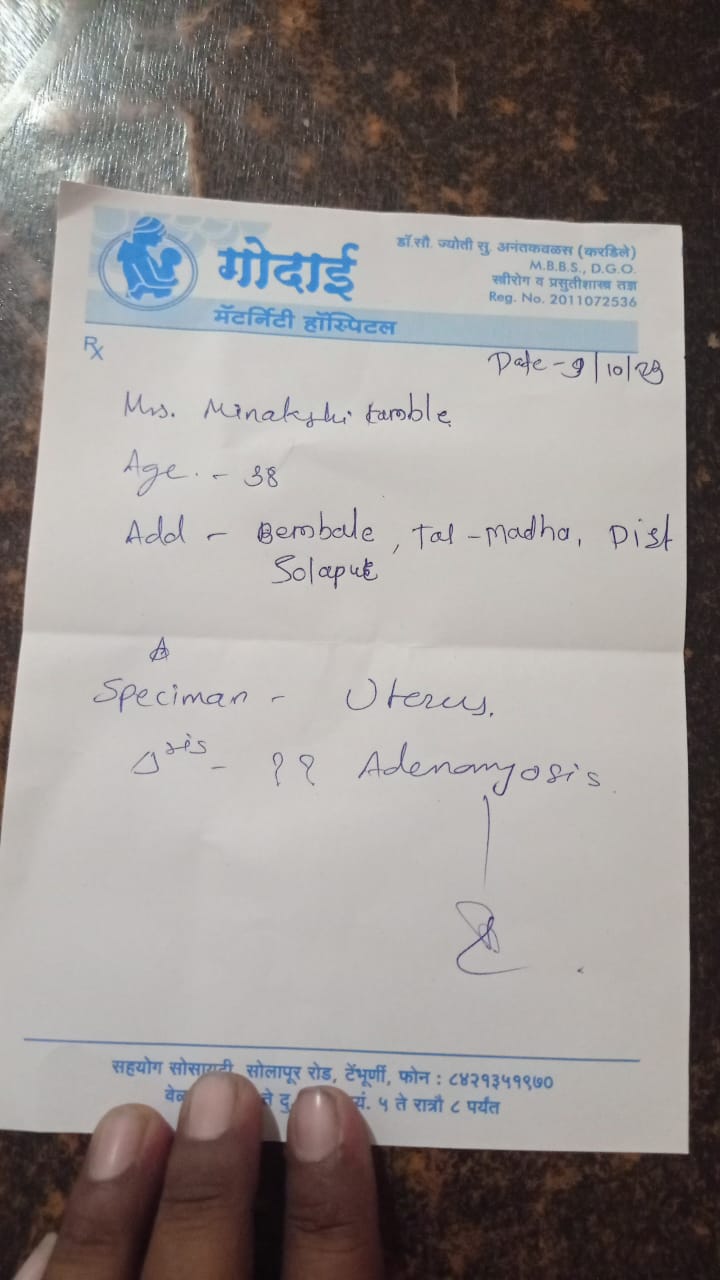 गोदाई
मॅटर्निटी हॉस्पिटल
डॉ.सौ. ज्योती सु. अनंतकवळस (करडिले)
M.B.B.S., D.G.O.
स्त्रीरोग व प्रसुतीशास्त्र तज्ञ
Reg. No. 2011072536
Rx
Date - 9/10/23
Mrs. Minakshi kamble
Age. - 38
Add - Bembale, Tal - madha, Dist
Solapur
Speciman - Uterus.
Δsis - ?? Adenomyosis.
सहयोग सोसायटी, सोलापूर रोड, टेंभूर्णी, फोन : ८४२१३५१९७०
५ ते रात्रौ ८ पर्यंत